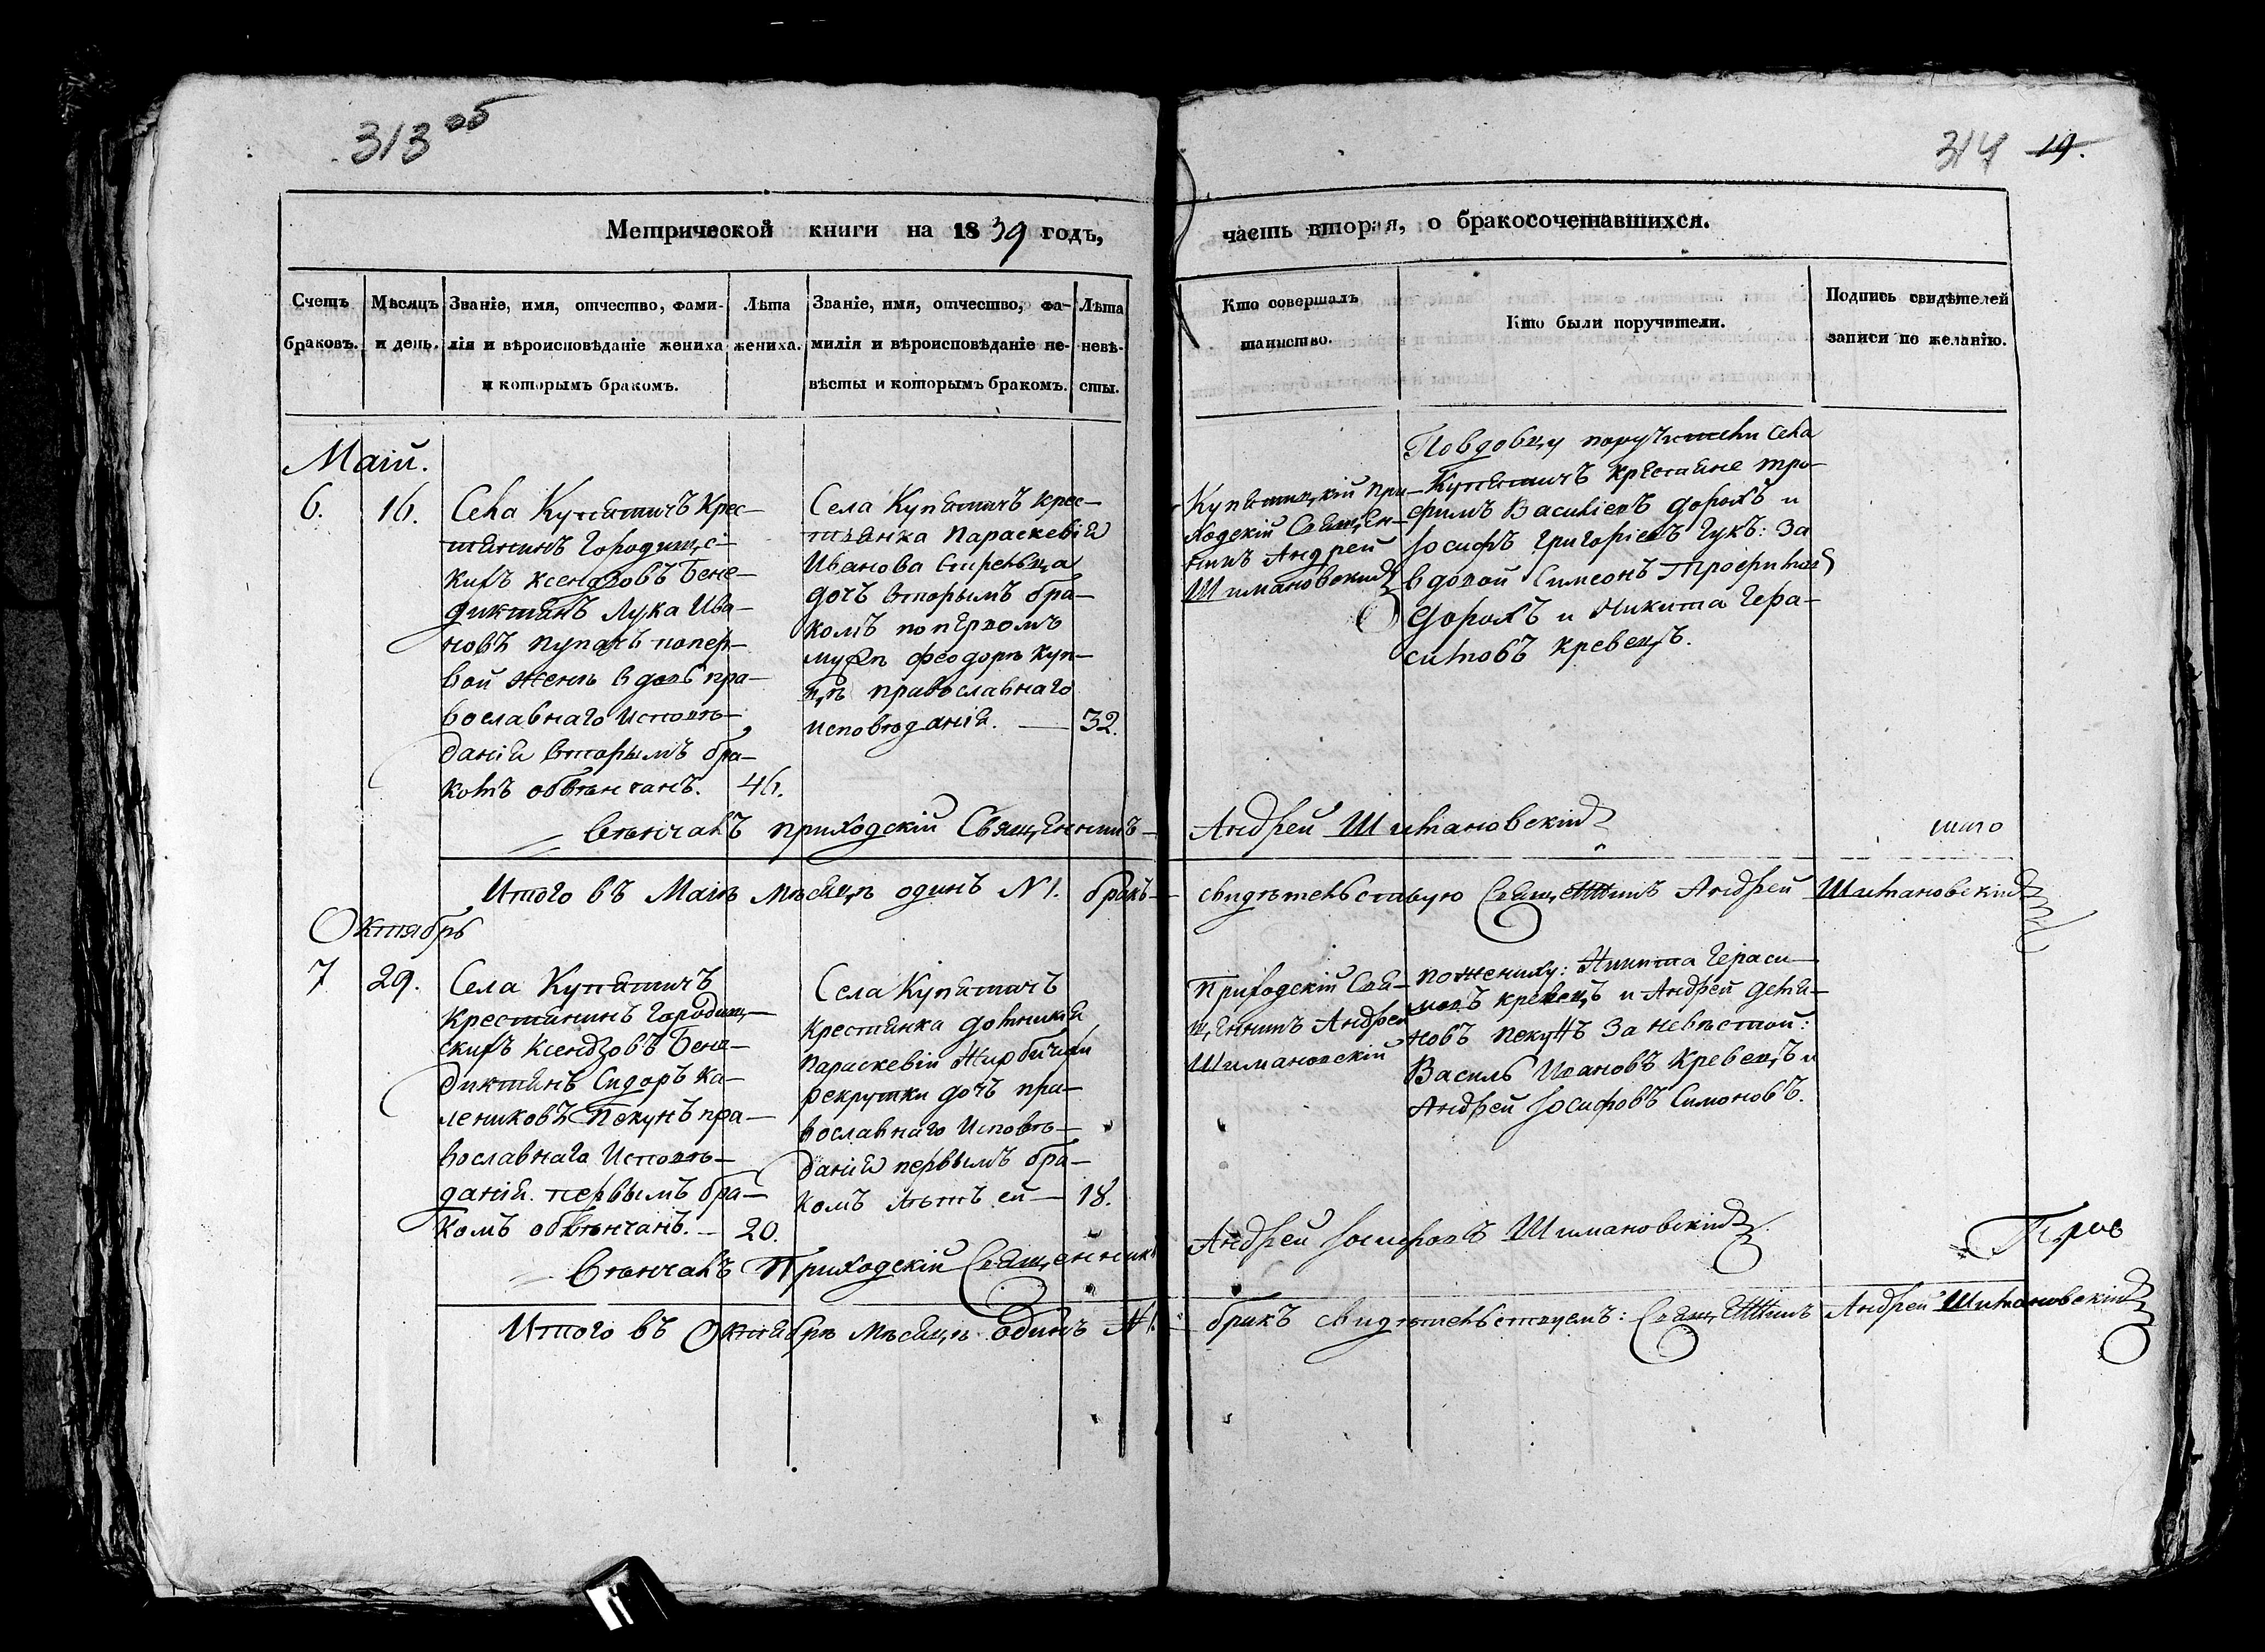 313 об
314 19.
Метрической книги на 1839 годъ,
часть вторая, о бракосочетавшихся.
Счетъ браковъ.
Мѣсяцъ и день.
Званіе, имя, отчество, фами-
лія и вѣроисповѣданіе жениха
и которымъ бракомъ.
Лѣта жениха.
Званіе, имя, отчество, фа-
милія и вѣроисповѣданіе не-
вѣсты и которымъ бракомъ.
Лѣта невѣ-
сты.
Кто совершалъ
таинство.
Кто были поручители.
Подпись свидѣтелей
записи по желанію.
Маій.
6.
16.
Села Купятичъ Крес-
тянинъ Городищс-
кихъ ксендзовъ Бене-
диктынъ Лука Ива-
новъ пупачъ попер-
вой женѣ вдовъ пра-
вославнаго Исповѣ-
данія вторымъ бра-
комъ обвѣнчанъ.
46.
Села Купятичъ крес-
тянка Параскевія
Иванова
дочъ вторымъ бра-
комъ поперьвомъ
мужѣ Феодорѣ Куп-
цѣ православнаго
исповѣданія.
32.
Купятицкій При-
ходскій Священ-
никъ Андрей
Шимановскій
Повдовцу поручители Села
Купятичъ крестяне тро-
фимъ Васильевъ дорохъ и
Іосифъ Григоріевъ Гукъ: За
вдовой Симеонъ Трофимовъ
Дорохъ и Никита Гера-
симовъ кревецъ.
Вѣнчалъ приходскій Священникъ
Андрей Шимановскій
шаго
Итого въ Маіѣ мѣсяцѣ одинъ N 1. бракъ
свидѣтельствую Священникъ Андрей Шимановскій
Октябрь
7
29.
Села Купятичъ
Крестянинъ Городищ-
скихъ Ксендзовъ Бене-
диктынъ Сидоръ Ка-
лениковъ Пекунъ пра-
вославнаго Исповѣ-
данія первымъ бра-
комъ обвѣнчанъ.
20.
Села Купятичъ
Крестянка домникія
Параскевіи Жировичихи
рекрутки дочъ пра-
вославнаго Исповѣ-
данія первымъ бра-
комъ лѣтъ ей
18.
Приходскій Свя-
щенникъ Андрей
Шимановскій
пожениху: Никита Гераси-
мовъ кревецъ и Андрей Демя-
новъ пекунъ За невѣстой:
Василь Ивановъ Кревецъ и
Андрей Іосифовъ Симоновъ.
Вѣнчалъ Приходскій Священникъ
Андрей Іосифовъ Шимановскій
Прос
Итого въ Октябрѣ Мѣсяцѣ одинъ N 1.
бракъ свидѣтельствуемъ: Священникъ Андрей Шимановскій